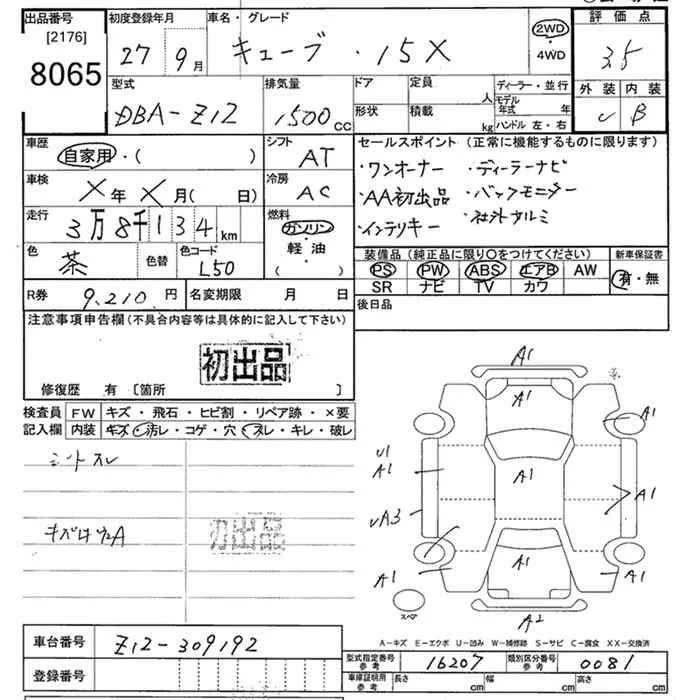 出品番号 初度登録年月 車名・グレード 評価点
[2176] 27 9月 キューブ・15X 2WD 3.5
8065 ・4WD
型式 排気量 ドア 定員 人 ディーラー・並行 外装 内装
DBA-Z12 1500cc 形状 積載 kg モデル年式 年 B
ハンドル 左・右
車歴 シフト セールスポイント (正常に機能するものに限ります)
自家用・( ) AT ・ワンオーナー ・ディーラーナビ
車検 冷房 ・AA初出品 ・バックモニター
X年X月( 日) AC ・インテリキー ・社外アルミ
走行 燃料
3万8千134km ガソリン
色 色替 色コード 軽油・ 装備品 (純正品に限り○をつけてください) 新車保証書
茶 L50 ( ) PS PW ABS エアB AW 有・無
SR ナビ TV カワ
R券 9,210円 名変期限 月 日 後日品
注意事項申告欄(不具合内容等は具体的に記入して下さい)
初出品
修復歴 有 〔箇所 〕
検査員 FW キズ・飛石・ヒビ割・リペア跡・×要
記入欄 内装 キズ・汚レ・コゲ・穴・スレ・キレ・破レ
シートスレ
初出品
A1
A1
A1
U1
A1 A1 A1
A3
A1 A1 A1
スペア A2
A-キズ E-エクボ U-凹み W-補修跡 S-サビ C-腐食 XX-交換済
車台番号 Z12-309192
型式指定番号 参考 16207 類別区分番号 参考 0081
登録番号 車庫証明用 参考 長さ cm 幅 cm 高さ cm